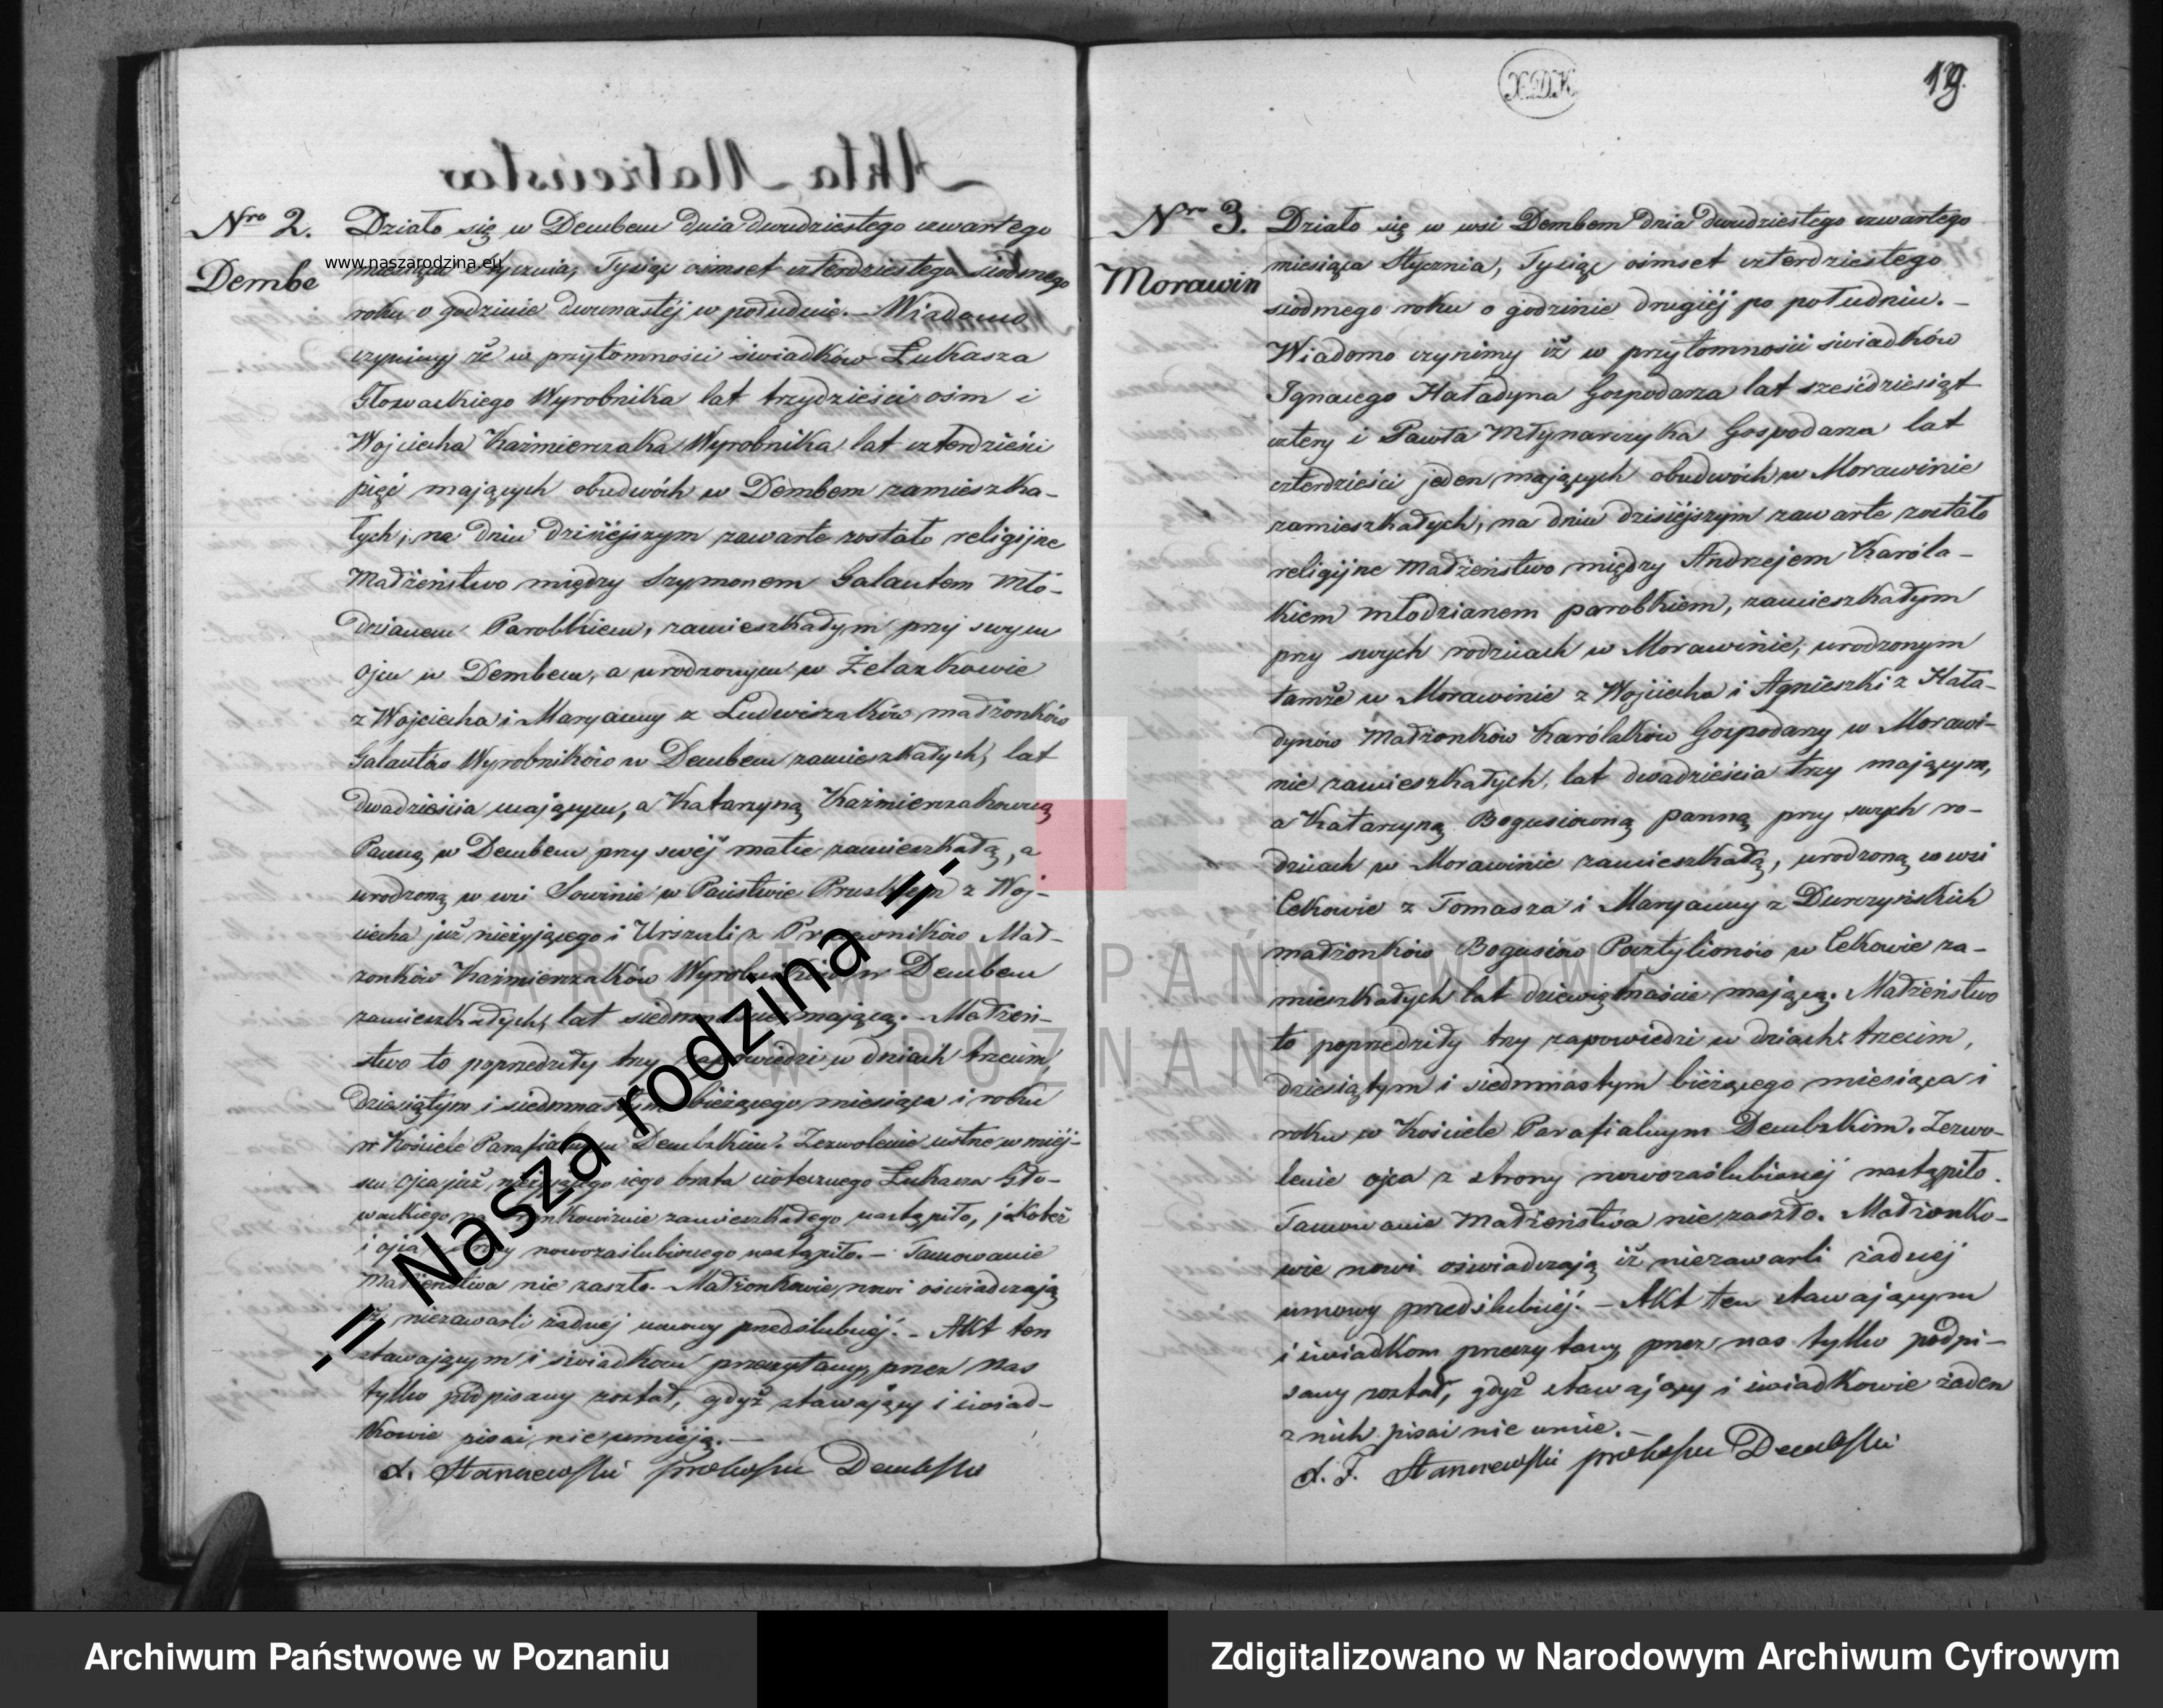 Akta Małżeństw
Nro 2.
Dembe
www.naszarodzina.eu
Działo się w Dembem dnia dwudziestego czwartego
miesiąca Stycznia, Tysiąc ośmset czterdziestego siódmego
roku o godzinie dwunastéj w południe. — Wiadomo
czynimy że w przytomności świadków Łukasza
Głowackiego Wyrobnika lat trzydzieści ośm i
Wojciecha Kaźmierczaka Wyrobnika lat czterdzieści
pięć mających obudwóch w Dembem zamieszka-
łych, na dniu dzisiéjszym zawarte zostało religijne
Małżeństwo między Szymonem Galantem Mło-
dzianem Parobkiem, zamieszkałym przy swym
ojcu w Dembem, a urodzonym w Żelazkowie
z Wojciecha i Maryanny z Ludwiczaków małżonków
Galantów Wyrobników w Dembem zamieszkałych, lat
dwadzieścia mającym, a Katarzyną Kaźmierczakowną
Panną w Dembem przy swéj matce zamieszkałą, a
urodzoną w wsi Sowinie w Państwie Pruskiem z Woj-
ciecha już nieżyjącego i Urszuli z Małż-
żonków Kaźmierczaków Wyrobników w Dembem
zamieszkałych, lat siedmnaście mającą. — Małżeń-
stwo to poprzedziły trzy zapowiedzi w dniach trzecim,
dziesiątym i siedmnastym bieżącego miesiąca i roku
w Kościele Parafialnym Dembskim. Zezwolenie ustne w miéj-
scu ojca już nieżyjącego jego brata ciotecznego Łukasza Gło-
wackiego na zamieszkałego nastąpiło, jakoteż
i ojca z strony nowozaślubionego nastąpiło. — Tamowanie
Małżeństwa nie zaszło. — Małżonkowie nowi oświadczają
iż niezawarli żadnéj umowy przedślubnéj. — Akt ten
stawającym i świadkom przeczytany, przez nas
tylko podpisany został, gdyż stawający i świad-
kowie pisać nie umieją. —
Stanczewski proboszcz Dembski
X.D.K
19.
Nro 3.
Morawin
Działo się w wsi Dembem dnia dwudziestego czwartego
miesiąca Stycznia, Tysiąc ośmset czterdziestego
siódmego roku o godzinie drugiéj po południu. —
Wiadomo czynimy iż w przytomności świadków
Ignacego Haładyna Gospodarza lat sześćdziesiąt
cztery i Pawła Młynarczyka Gospodarza lat
czterdzieści jeden mających obudwóch w Morawinie
zamieszkałych, na dniu dzisiéjszym zawarte zostało
religijne Małżeństwo między Andrzejem Karóla-
kiem młodzianem parobkiem, zamieszkałym
przy swych rodzicach w Morawinie, urodzonym
tamże w Morawinie z Wojciecha i Agnieszki z Hała-
dynów Małżonków Karólaków Gospodarzy w Morawi-
nie zamieszkałych, lat dwadzieścia trzy mającym,
a Katarzyną Bogusiówną panną przy swych ro-
dzicach w Morawinie zamieszkałą, urodzoną w wsi
Cekowie z Tomasza i Maryanny z Durczyńskich
małżonków Bogusiów Pocztylionów w Cekowie za-
mieszkałych lat dziewiętnaście mającą. Małżeństwo
to poprzedziły trzy zapowiedzi w dniach: trzecim,
dziesiątym i siedmnastym bieżącego miesiąca i
roku w Kościele Parafialnym Dembskim. Zezwo-
lenie ojca z strony nowozaślubionéj nastąpiło.
Tamowanie Małżeństwa nie zaszło. Małżonko-
wie nowi oświadczają iż niezawarli żadnéj
umowy przedślubnéj. — Akt ten stawającym
i świadkom przeczytany przez nas tylko podpi-
sany został, gdyż stawający i świadkowie żaden
z nich pisać nie umie. —
Stanczewski proboszcz Dembski
-:= Nasza rodzina =:-
ARCHIWUM PAŃSTWOWE
W POZNANIU
Archiwum Państwowe w Poznaniu
Zdigitalizowano w Narodowym Archiwum Cyfrowym